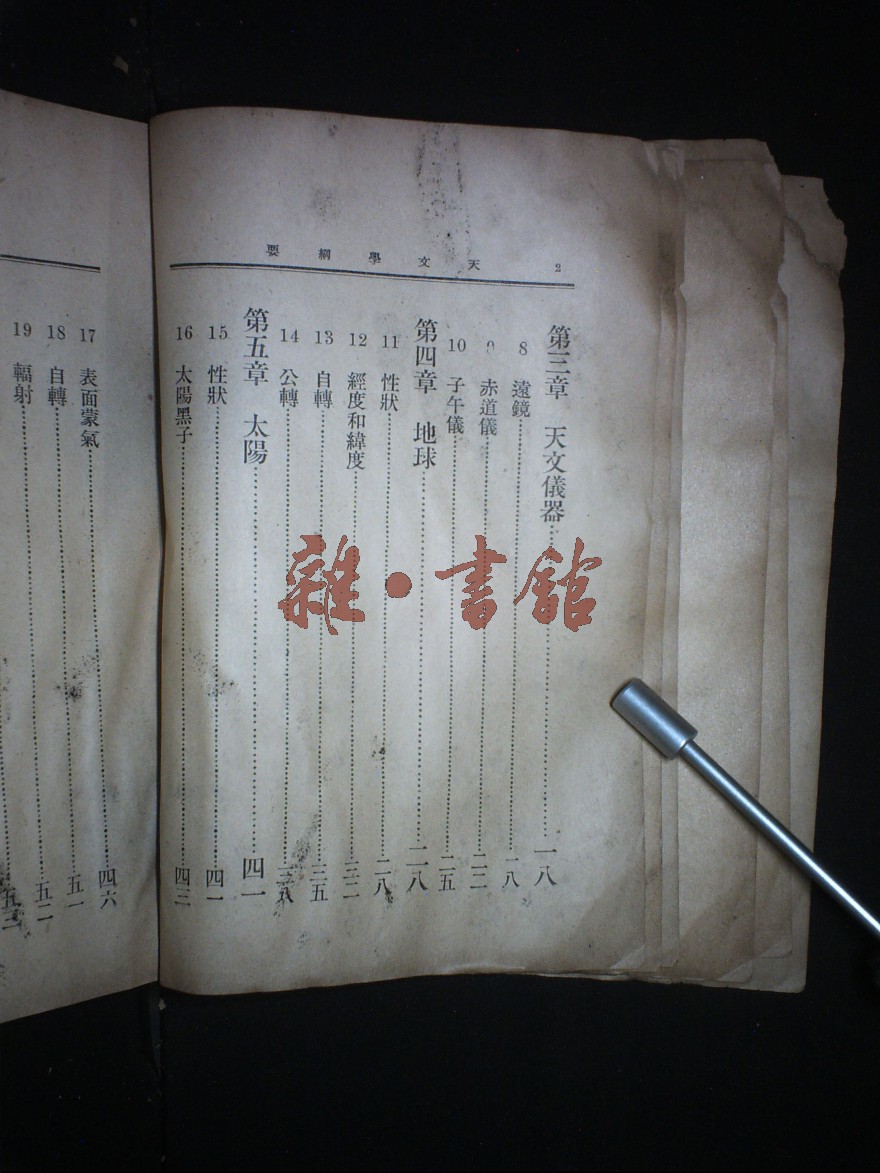 天文學綱要 2
第三章 天文儀器 一八
8 遠鏡 一八
9 赤道儀 二二
10 子午儀 二五
第四章 地球 二八
11 性狀 二八
12 經度和緯度 三二
13 自轉 三五
14 公轉 三八
第五章 太陽 四一
15 性狀 四一
16 太陽黑子 四三
17 表面蒙氣 四六
18 自轉 五一
19 輻射 五二
雜·書館